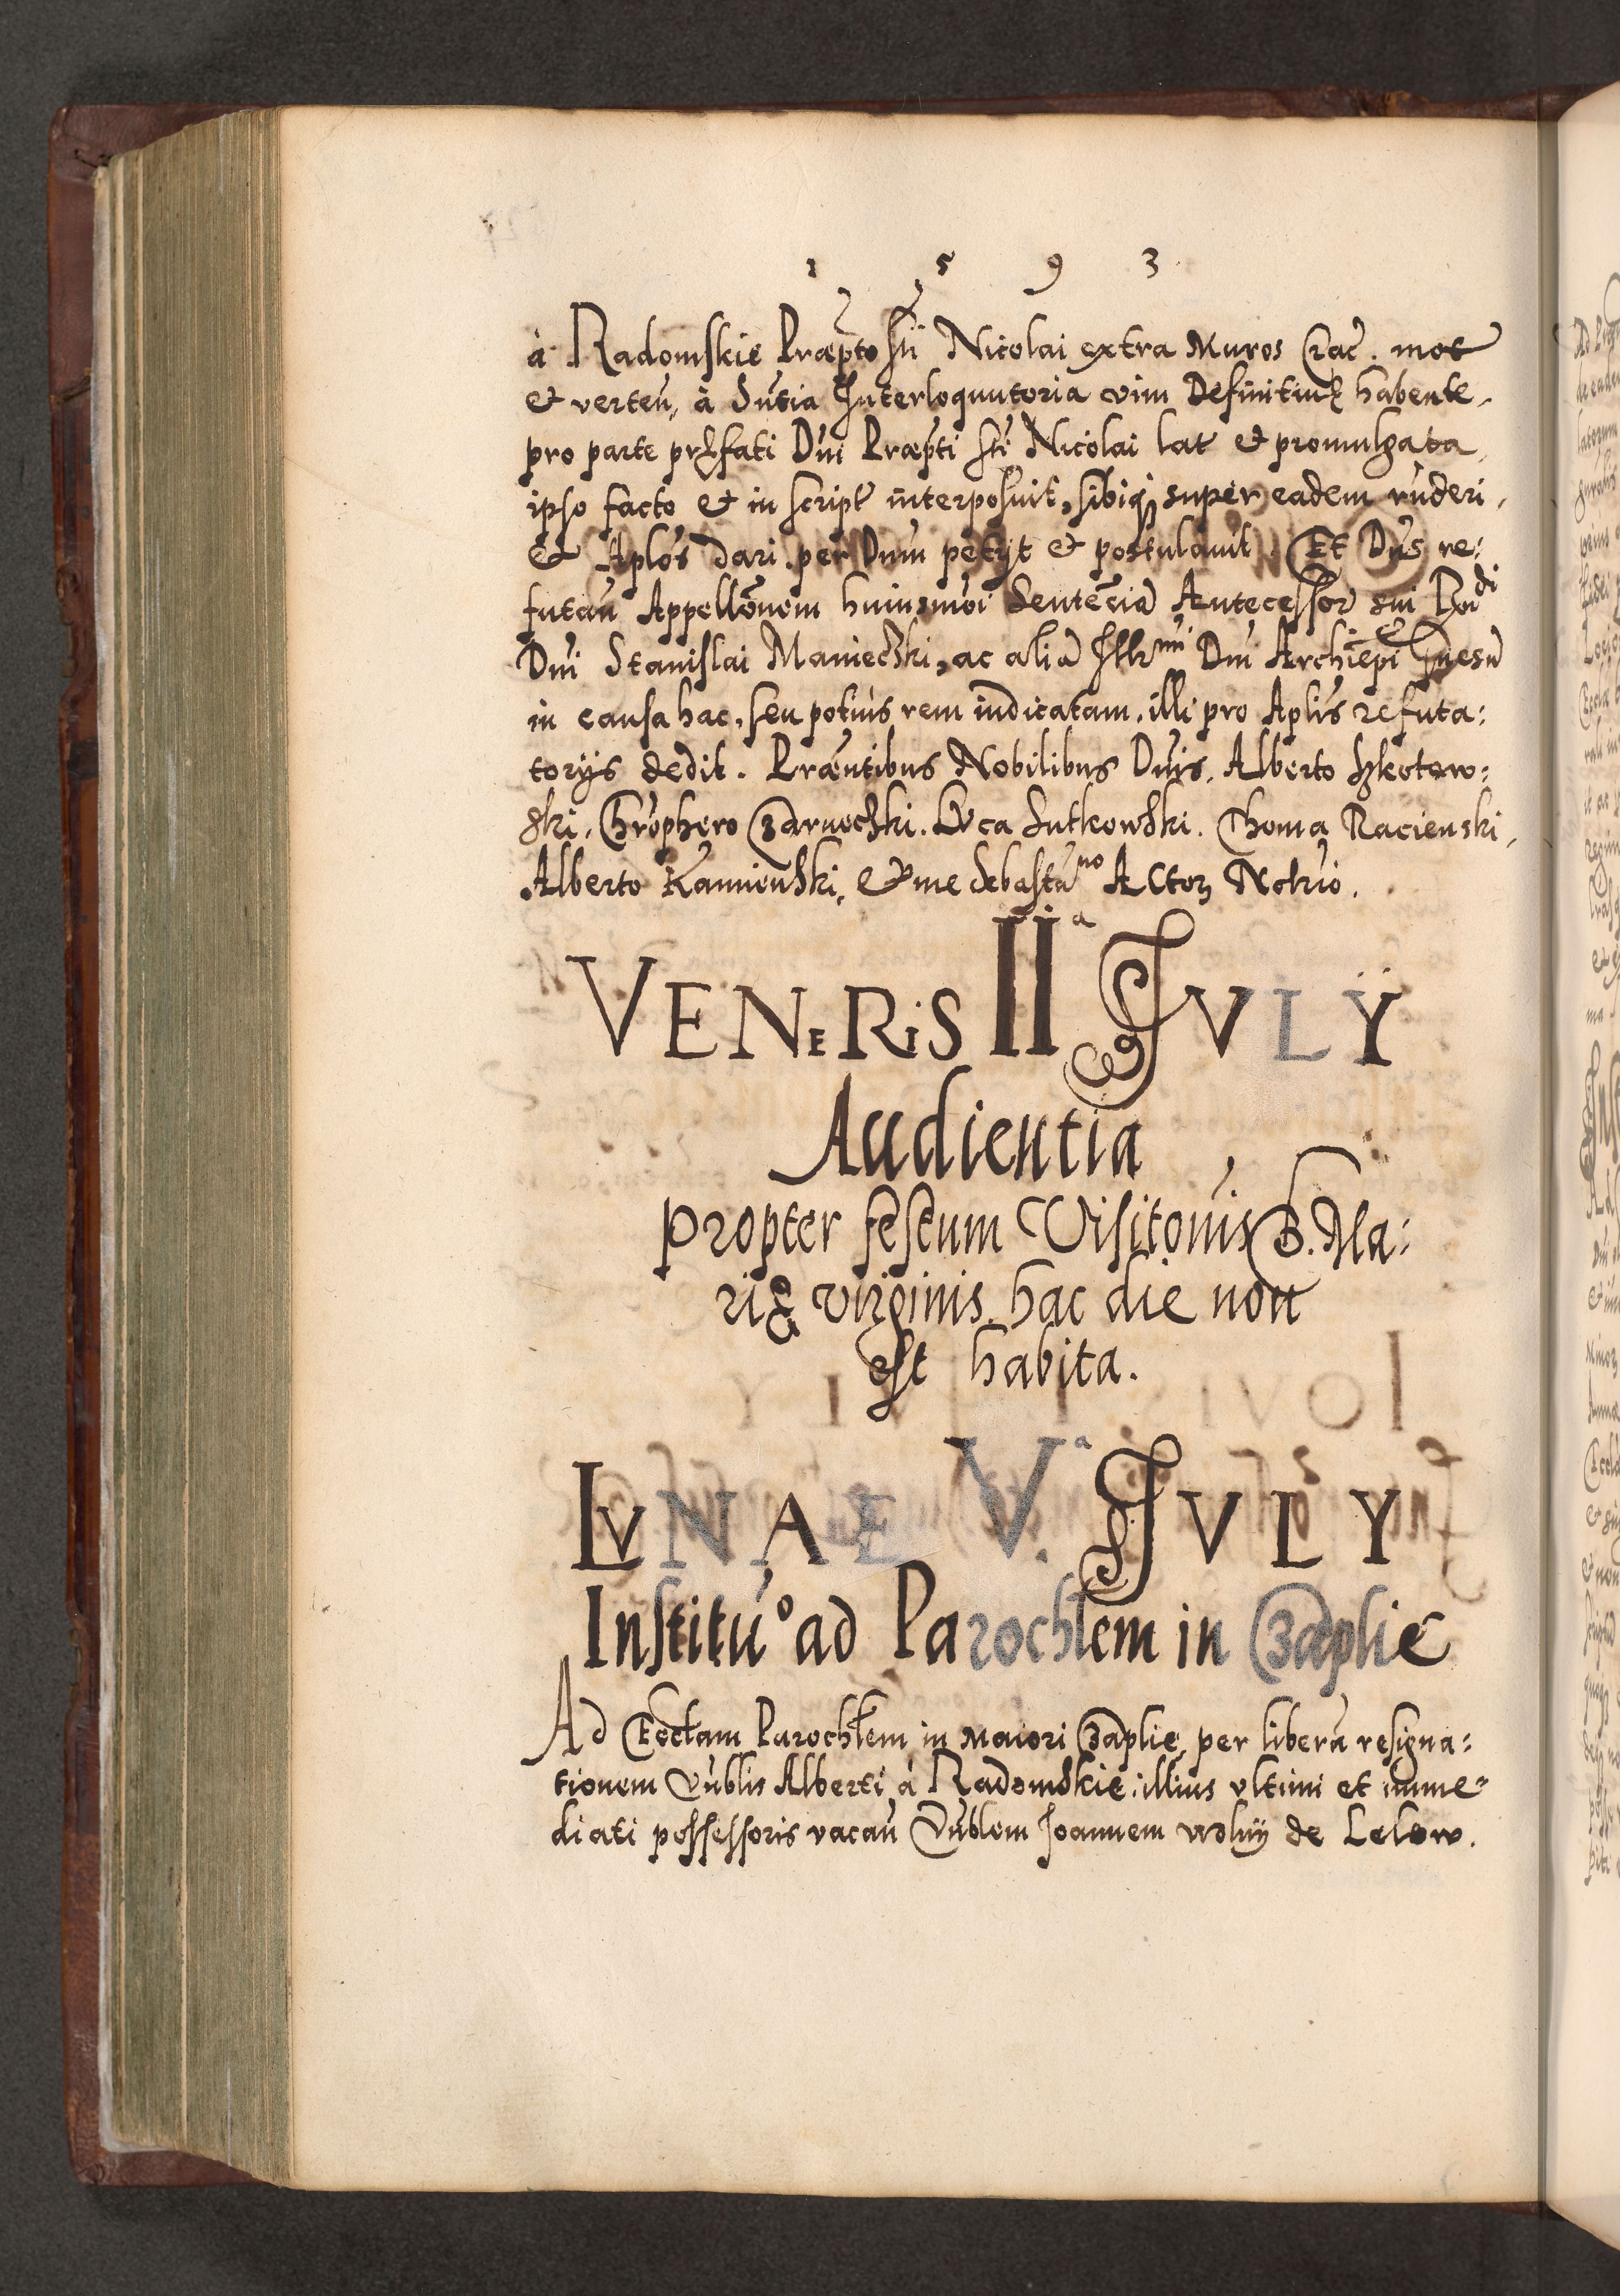 1 5 9 3
à Radomskie Præpto sti Nicolai extra Muros Crac. mot
et verteń, à Sńtia Interloquutoria vim Definitiuæ habente,
pro parte præfati Dni Præpti sti Nicolai lat et promulgata,
ipso facto et in script interposuit, sibiq; super eadem ruderi,
et Aplos dari per Dnum petijt et postulauit. Et Dńs re:
futań Appellōnem huiusmōi Sentēcia Antecessor sui Rǹdi
Dni Stanislai Manieczki, ac alia Illrmi Dni Archiēpi Gnesń
in causa hac, seu potius rem iudicatam, illi pro Aplis refuta:
torijs dedit. Præntibus Nobilibus Dńis. Alberto Szkotow:
ski, Chrōphero Czarnoczki. Luca Sutkowski. Thoma Racienski,
Alberto Kamienski, et me Sebastiano Actor Notrio.
VENERIS II a IVLŸ
Audientia
propter festum Visitōnis B. Ma:
riæ virginis hac die non
est habita.
LVNAE V. a IVLY
Institú° ad Parochlem in Czaplie
Ad Ecctam Parochlem in Maiori Czaplie, per liberā resigna:
tionem Vńblis Alberti à Radomskie, illius vltimi et imme:
diati possessoris vacań Vńblem Joannem de Lelow.